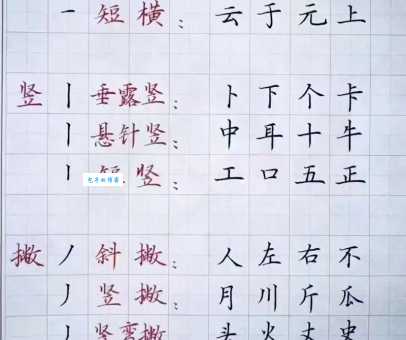 一 短横：云于元上
竖 丨 垂露竖：卜下个卡
丨 悬针竖：中耳十牛
丨 短竖：工口五正
撇 丿 斜撇：人左右不
丿 竖撇：月川斤瓜
丿 竖弯撇 头火丈史